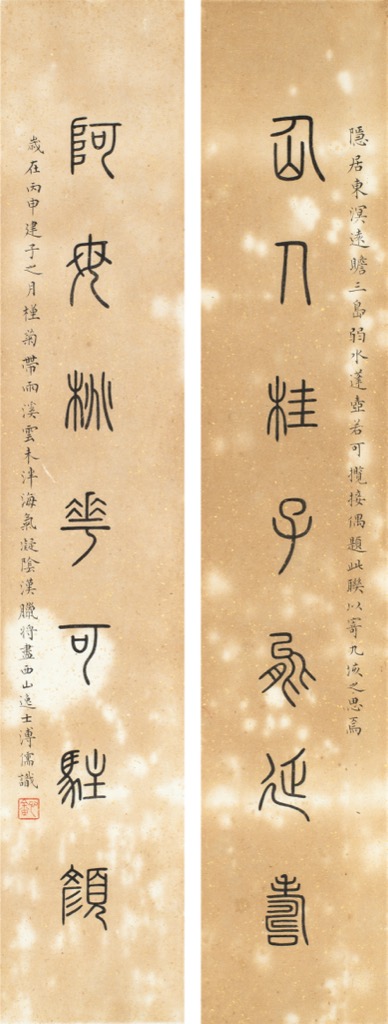 隱居東溟遠瞻三島弱水蓬壺若可攬接偶題此聯以寄九垓之思焉
仚人桂子能延壽
阿母桃花可駐顏
歲在丙申建子之月槿菊帶雨溪雲未泮海氣凝陰漢臘將盡西山逸士溥儒識